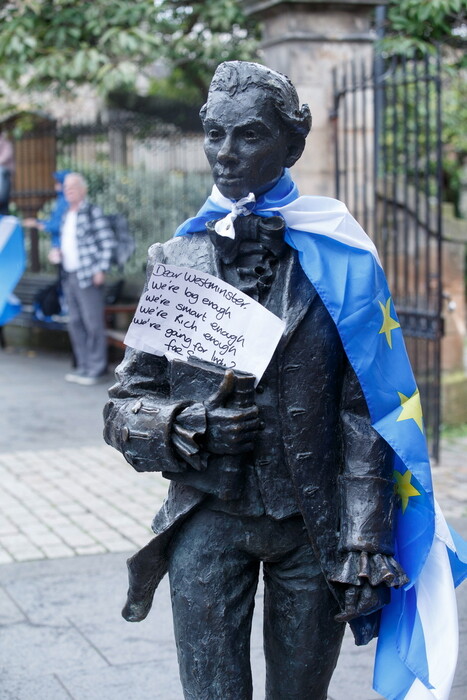 Dear Westminster,
We're big enough
We're smart enough
We're Rich enough
We're going for Indy2